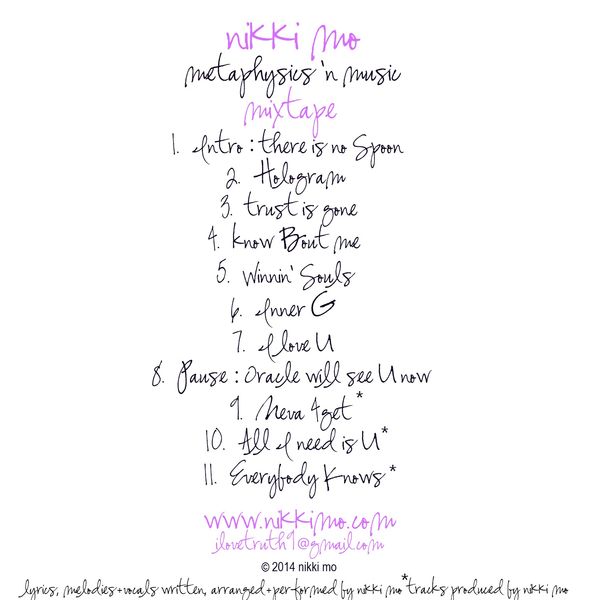 nikki mo
metaphysics 'n music
mixtape
1. Intro : there is no Spoon
2. Hologram
3. trust is gone
4. know Bout me
5. Winnin' Souls
6. Inner G
7. I love U
8. Pause : Oracle will see U now
9. Neva 4get *
10. All I need is U *
11. Everybody Knows *
www.nikkimo.com
ilovetruth9@gmail.com
© 2014 nikki mo
lyrics, melodies+vocals written, arranged+performed by nikki mo *tracks produced by nikki mo